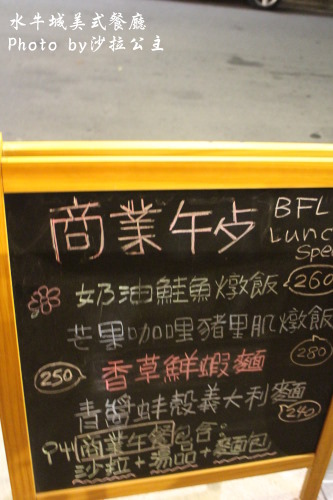 水牛城美式餐廳
Photo by沙拉公主
商業午歺
BFL
Lunc
Spe
奶油鮭魚燉飯 260
芒果咖哩豬里肌燉飯
280
250 香草鮮蝦麵
青醬蚌殼義大利麵
240
P4 商業午餐包含:
沙拉+湯品+麵包